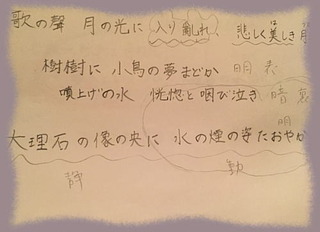 歌の聲 月の光に 入り亂れ 悲しく美しき月
樹樹に 小鳥の夢まどか 明 表
噴上げの水 恍惚と咽び泣き 暗 裏
明
大理石の像の央に 水の煙の姿たおやか
静 動